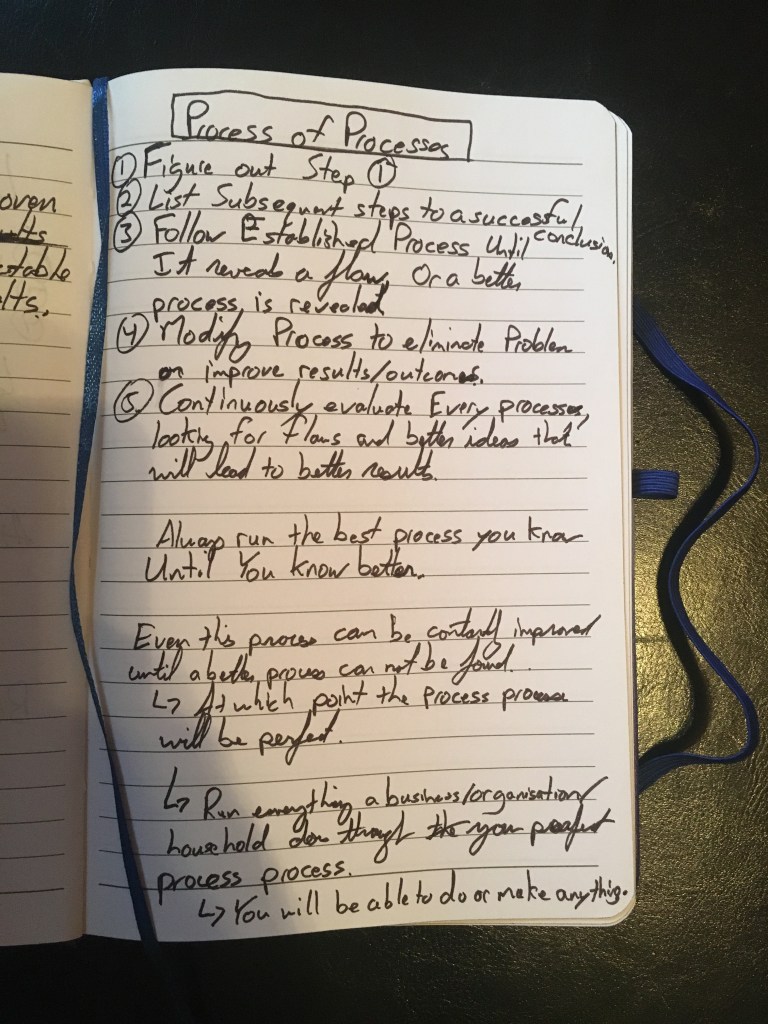 oven
ults
estable
lts.
Process of Processes
① Figure out Step ①
② List Subsequent steps to a successful
conclusion.
③ Follow Established Process Until
It reveals a flaw, Or a better
process is revealed
④ Modify Process to eliminate Problem
or improve results/outcomes.
⑤ Continuously evaluate Every processes,
looking for flaws and better ideas that
will lead to better results.
Always run the best process you know
Until You know better.
Even this process can be constantly improved
until a better process can not be found.
↳ At which point the process process
will be perfect.
↳ Run everything a business/organisation/
household does through the your perfect
process process.
↳ You will be able to do or make anything.